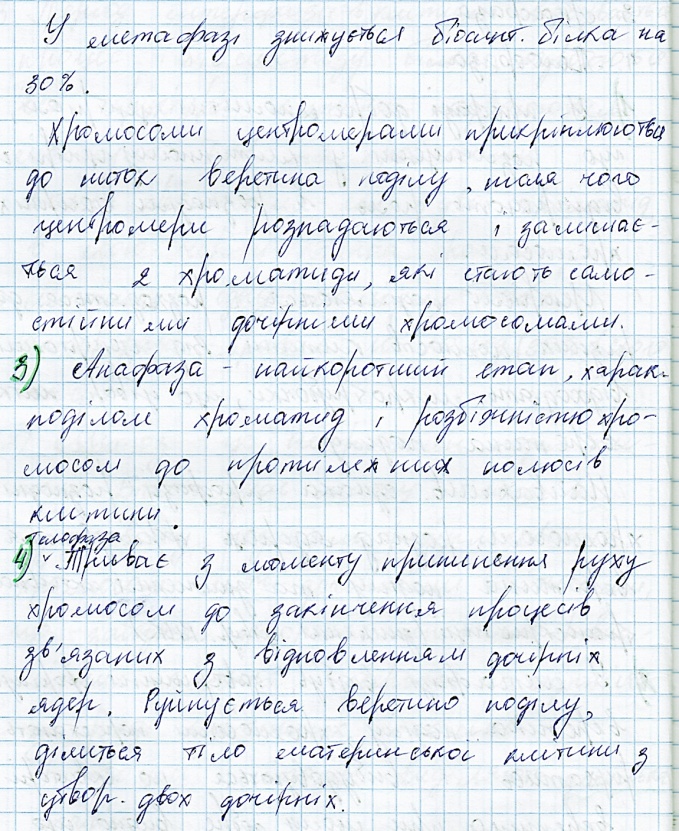 У метафазі знижується біосинт. білка на
30%.
Хромосоми центромерами прикріплюються
до ниток веретина поділу, після чого
центромери розпадаються і залишає-
ться 2 хроматиди, які стають само-
стійними дочірніми хромосомами.
3) Анафаза - найкоротший етап, харак.
поділом хроматид і розбіжністю хро-
мосом до протилежних полюсів
клітини.
Телофаза
4) Триває з моменту припинення руху
хромосом до закінчення процесів
зв'язаних з відновленням дочірніх
ядер. Руйнується веретино поділу,
ділиться тіло материнської клітини з
утвор. двох дочірніх.